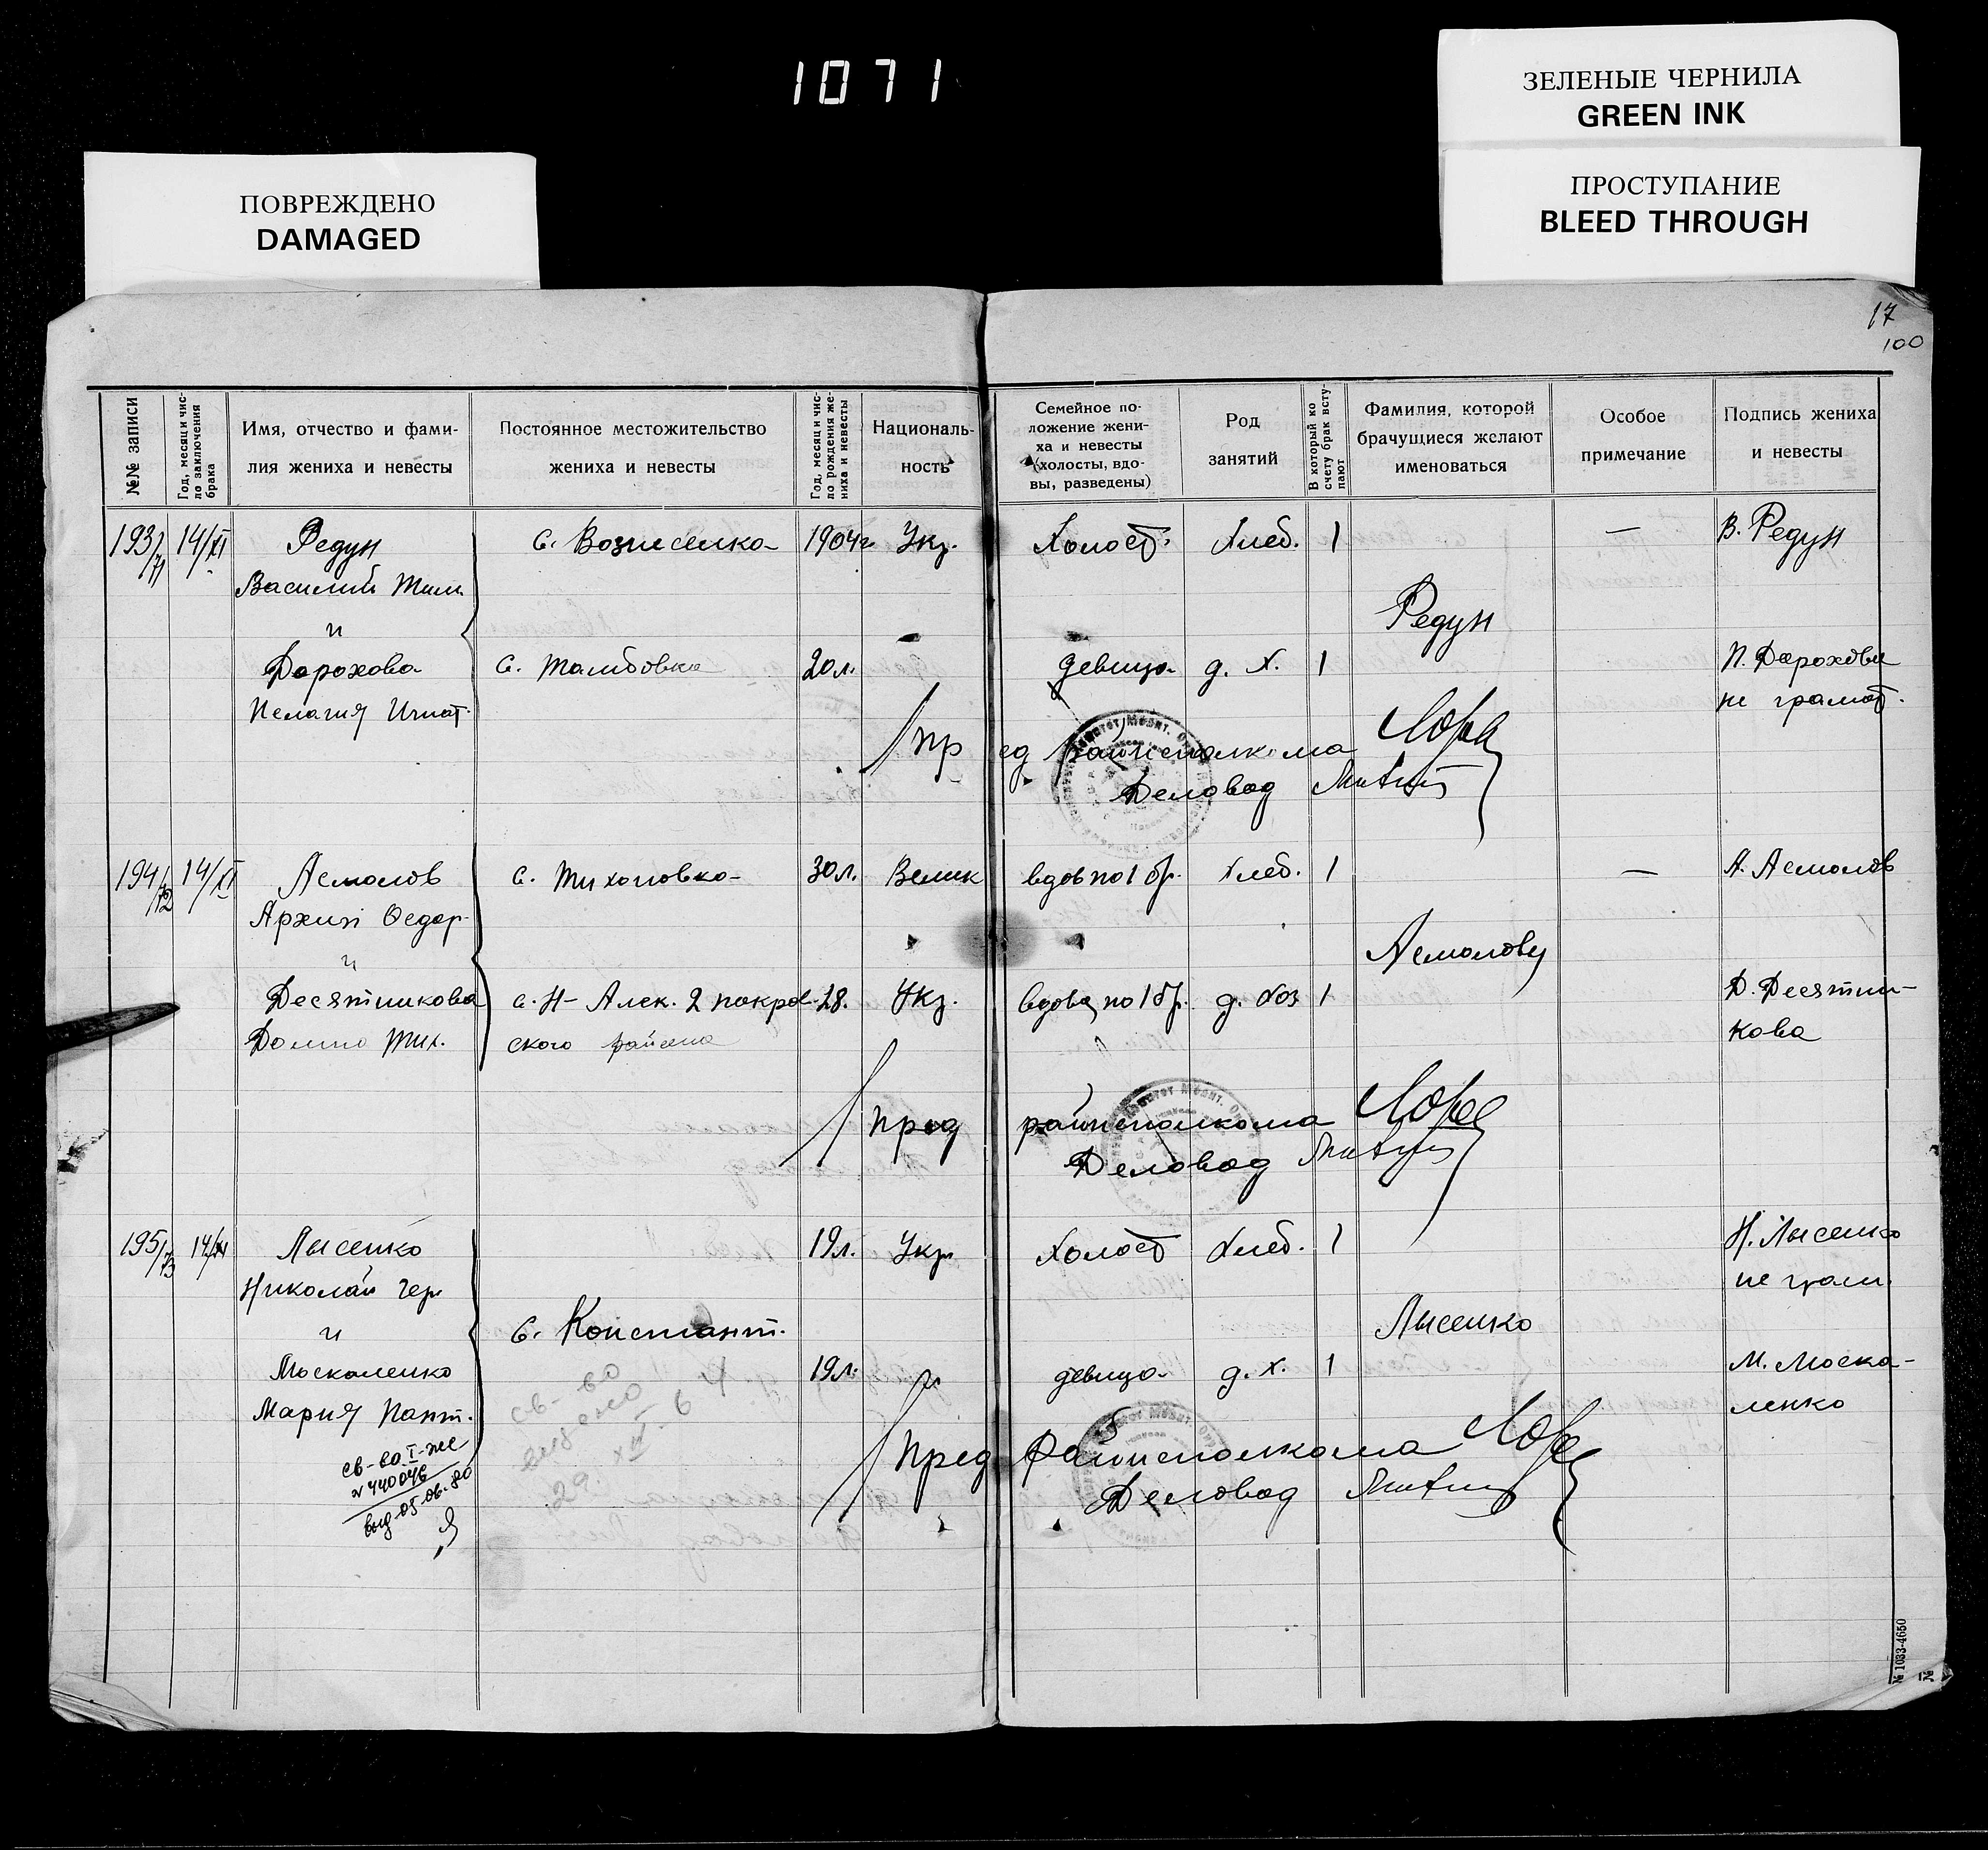 1071
ЗЕЛЕНЫЕ ЧЕРНИЛА
GREEN INK
ПОВРЕЖДЕНО
DAMAGED
ПРОСТУПАНИЕ
BLEED THROUGH
17
100
№№ записи
Год, месяц и чис-
ло заключения
брака
Имя, отчество и фами-
лия жениха и невесты
Постоянное местожительство
жениха и невесты
Год, месяц и чис-
ло рождения же-
ниха и невесты
Националь-
ность
Семейное по-
ложение жени-
ха и невесты
(холосты, вдо-
вы, разведены)
Род
занятий
В который ко
счету брак всту-
пают
Фамилия, которой
брачущиеся желают
именоваться
Особое
примечание
Подпись жениха
и невесты
193/71 14/XI Редун с. Вознесенка 1904г Укр. Холост. Хлеб. 1 — В. Редун
Василий Тим.
и
Редун
Дорохова с. Тамбовка 20л. девица д. х. 1 П. Дорохова
Пелагия Игнат. не грамот.
Пред райисполкома
Деловод
194/72 14/XI Асмолов с. Тихоновка 30л. Велик вдов по 1 бр. Хлеб. 1 — А. Асмолов
Архип Федор.
и
Асмоловы
Десятникова с. Н-Алек. 2 покров- 28. Укр. вдова по 1 бр. д. хоз 1 Д. Десятни-
Домна Тих. ского района кова
Пред райисполкома
Деловод
195/73 14/XI Лысенко 19л. Укр. Холост Хлеб. 1 Н. Лысенко
Николай Гер. не грам.
и с. Констант. Лысенко
Москаленко 19л. девица д. х. 1 М. Моска-
Мария Пант. ленко
св-во I-же
№ 440046
выд 05.06.80
св-во
29. XII. 64
Пред Райисполкома
Деловод
№ 1033-4650